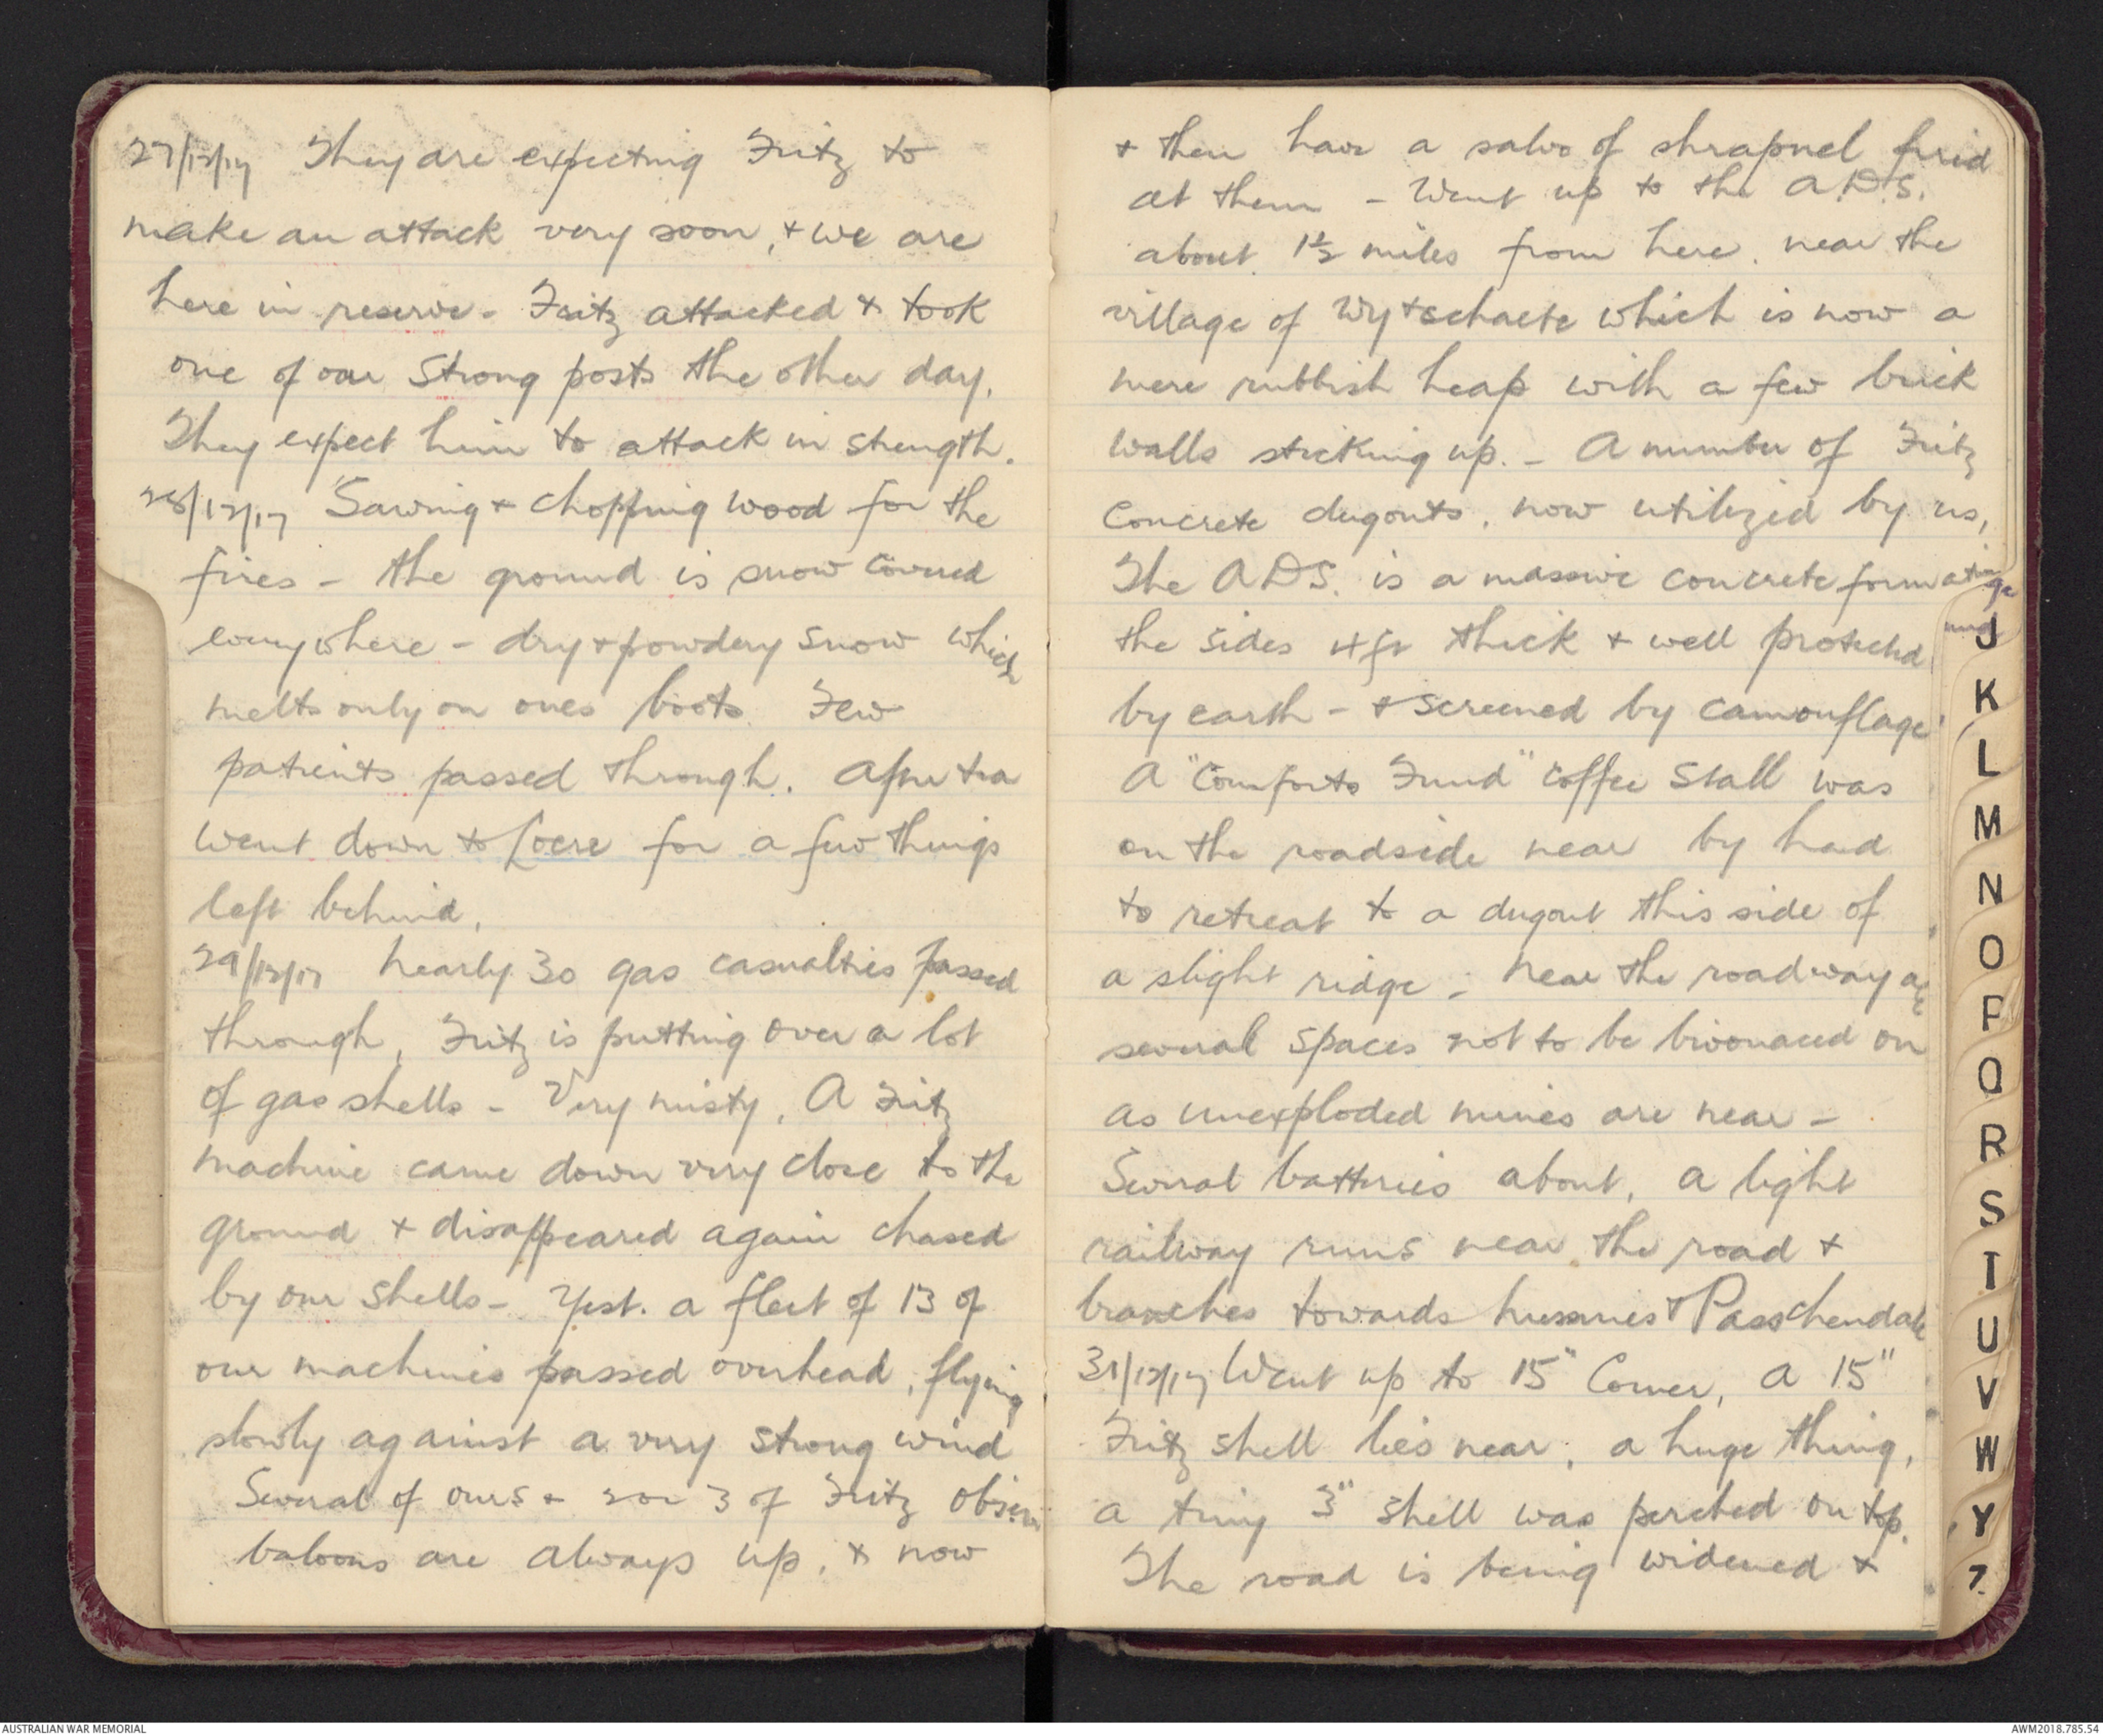 27/12/17 They are expecting Fritz to
make an attack very soon, & we are
here in reserve - Fritz attacked & took
one of our strong posts the other day.
They expect him to attack in strength.
28/12/17 Sawing & chopping wood for the
fires - the ground is snow covered
everywhere - dry & powdery snow which
melts only on ones boots. Few
patients passed through. After tea
went down to Locre for a few things
left behind.
29/12/17 nearly 30 gas casualties passed
through, Fritz is putting over a lot
of gas shells - Very misty. A Fritz
machine came down very close to the
ground & disappeared again chased
by our shells - Yest. a fleet of 13 of
our machines passed overhead, flying
slowly against a very strong wind
Several of ours & 2 or 3 of Fritz observ
baloons are always up, & now
& then have a salvo of shrapnel fired
at them - Went up to the A.D.S.
about 1½ miles from here, near the
village of Wytschaete which is now a
mere rubbish heap with a few brick
walls sticking up. - A number of Fritz
concrete dugouts, now utilized by us,
The ADS. is a massive concrete formation
the sides 4 ft thick & well protected
by earth - & screened by camouflage
A "Comforts Fund" coffee stall was
on the roadside near by had
to retreat to a dugout this side of
a slight ridge - near the roadway are
several spaces not to be bivouaced on
as unexploded mines are near -
Several batteries about, a light
railway runs near the road &
branches towards Messines & Passchendale
31/12/17 Went up to 15" Corner, A 15"
Fritz shell lies near, a huge thing,
a tiny 3" shell was perched on top.
The road is being widened &
J
K
L
M
N
O
P
Q
R
S
T
U
V
W
Y
Z
AUSTRALIAN WAR MEMORIAL
AWM2018.785.54